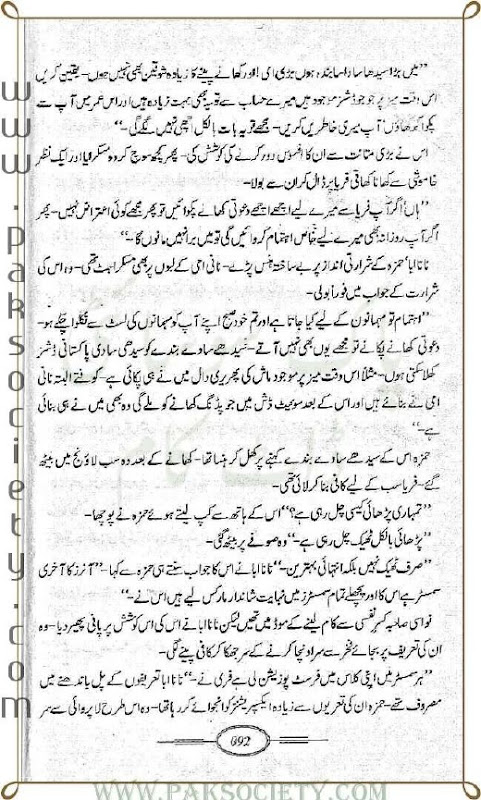 "میں بڑا سیدھا سادا سا بندہ ہوں بڑی امی! اور کھانے پینے کا زیادہ شوقین بھی نہیں ہوں۔ یقین کریں
اس وقت میز پر جو جو ڈشز موجود ہیں میرے حساب سے تو یہ بھی بہت زیادہ ہیں اور اس عمر میں آپ سے
پکوا کر کھاؤں آپ میری خاطریں کریں۔ مجھے تو یہ بات بالکل اچھی نہیں لگے گی۔"
اس نے بڑی متانت سے ان کا افسوس دور کرنے کی کوشش کی۔ پھر کچھ سوچ کر وہ مسکرایا اور ایک نظر
خاموشی سے کھانا کھاتی فریا پر ڈال کر ان سے بولا۔
"ہاں اگر آپ فریا سے میرے لیے اچھے اچھے دعوتی کھانے پکوائیں تو پھر مجھے کوئی اعتراض نہیں۔ پھر
اگر آپ روزانہ بھی میرے لیے خاص اہتمام کروائیں گی تو میں برا نہیں مانوں گا۔"
نانا ابا حمزہ کے شرارتی انداز پر بے ساختہ ہنس پڑے۔ نانی امی کے لبوں پر بھی مسکراہٹ تھی۔ وہ اس کی
شرارت کے جواب میں فوراً بولی۔
"اہتمام تو مہمانوں کے لیے کیا جاتا ہے اور تم خود صبح اپنے آپ کو مہمانوں کی لسٹ سے نکلوا چکے ہو۔
دعوتی کھانے پکانے تو مجھے یوں بھی نہیں آتے۔ سیدھے سادے بندے کو سیدھی سادی پاکستانی ڈشز
کھلا سکتی ہوں۔ مثلاً اس وقت میز پر موجود ماش کی پھریری دال میں نے ہی پکائی ہے۔ کوفتے البتہ نانی
امی نے بنائے ہیں اور اس کے بعد سوئیٹ ڈش میں جو پڈنگ کھانے کو ملے گی وہ بھی میں نے ہی بنائی
ہے۔"
حمزہ اس کے سیدھے سادے بندے کہنے پر کھل کر ہنسا تھا۔ کھانے کے بعد وہ سب لاؤنج میں بیٹھ
گئے۔ فریا سب کے لیے کافی بنا کر لائی تھی۔
"تمہاری پڑھائی کیسی چل رہی ہے؟" اس کے ہاتھ سے کپ لیتے ہوئے حمزہ نے پوچھا۔
"پڑھائی بالکل ٹھیک چل رہی ہے۔" وہ صوفے پر بیٹھ گئی۔
"صرف ٹھیک نہیں بلکہ انتہائی بہترین۔" نانا ابا نے اس کا جواب سنتے ہی حمزہ سے کہا۔ "آنرز کا آخری
سمسٹر ہے اس کا اور پچھلے تمام سمسٹرز میں نہایت شاندار مارکس لیے ہیں اس نے۔"
نواسی صاحبہ کسر نفسی سے کام لینے کے موڈ میں تھیں لیکن نانا ابا نے اس کی اس کوشش پر پانی پھیر دیا۔ وہ
ان کی تعریف پر بجائے فخر سے سر اونچا کرنے کے سر جھکا کر کافی پینے لگی۔
"ہر سمسٹر میں اپنی کلاس میں فرسٹ پوزیشن لی ہے فری نے۔" نانا ابا تعریفوں کے پل باندھنے میں
مصروف تھے۔ حمزہ ان کی تعریفوں سے زیادہ ایکسپریشنز کو انجوائے کر رہا تھا۔ وہ اس طرح لا پروائی سے سر
692
www.paksociety.com
WWW.PAKSOCIETY.COM